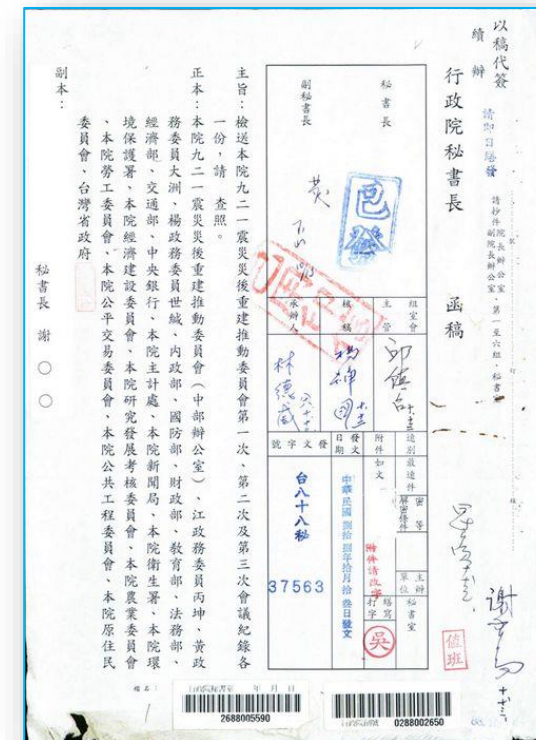 以稿代簽
續辦
請即日繕發
行政院秘書長 函稿
秘書長
副秘書長
已發
組室會
主管
核稿
承辦人
林德威
速別 最速件
密等
解密條件
附件 如文
附件請改字
主辦單位 秘書室
繕寫打字
吳
值班
發文日期
中華民國捌拾捌年拾月拾叁日發文
發文字號
台八十八秘
37563
主旨:檢送本院九二一震災災後重建推動委員會第一次、第二次及第三次會議紀錄各
一份,請 查照。
正本:本院九二一震災災後重建推動委員會(中部辦公室)、江政務委員丙坤、黃政
務委員大洲、楊政務委員世緘、內政部、國防部、財政部、教育部、法務部、
經濟部、交通部、中央銀行、本院主計處、本院新聞局、本院衛生署、本院環
境保護署、本院經濟建設委員會、本院研究發展考核委員會、本院農業委員會
、本院勞工委員會、本院公平交易委員會、本院公共工程委員會、本院原住民
委員會、台灣省政府
副本:
秘書長 謝○○
檔名:
年 月 日
2688005590
0288002650